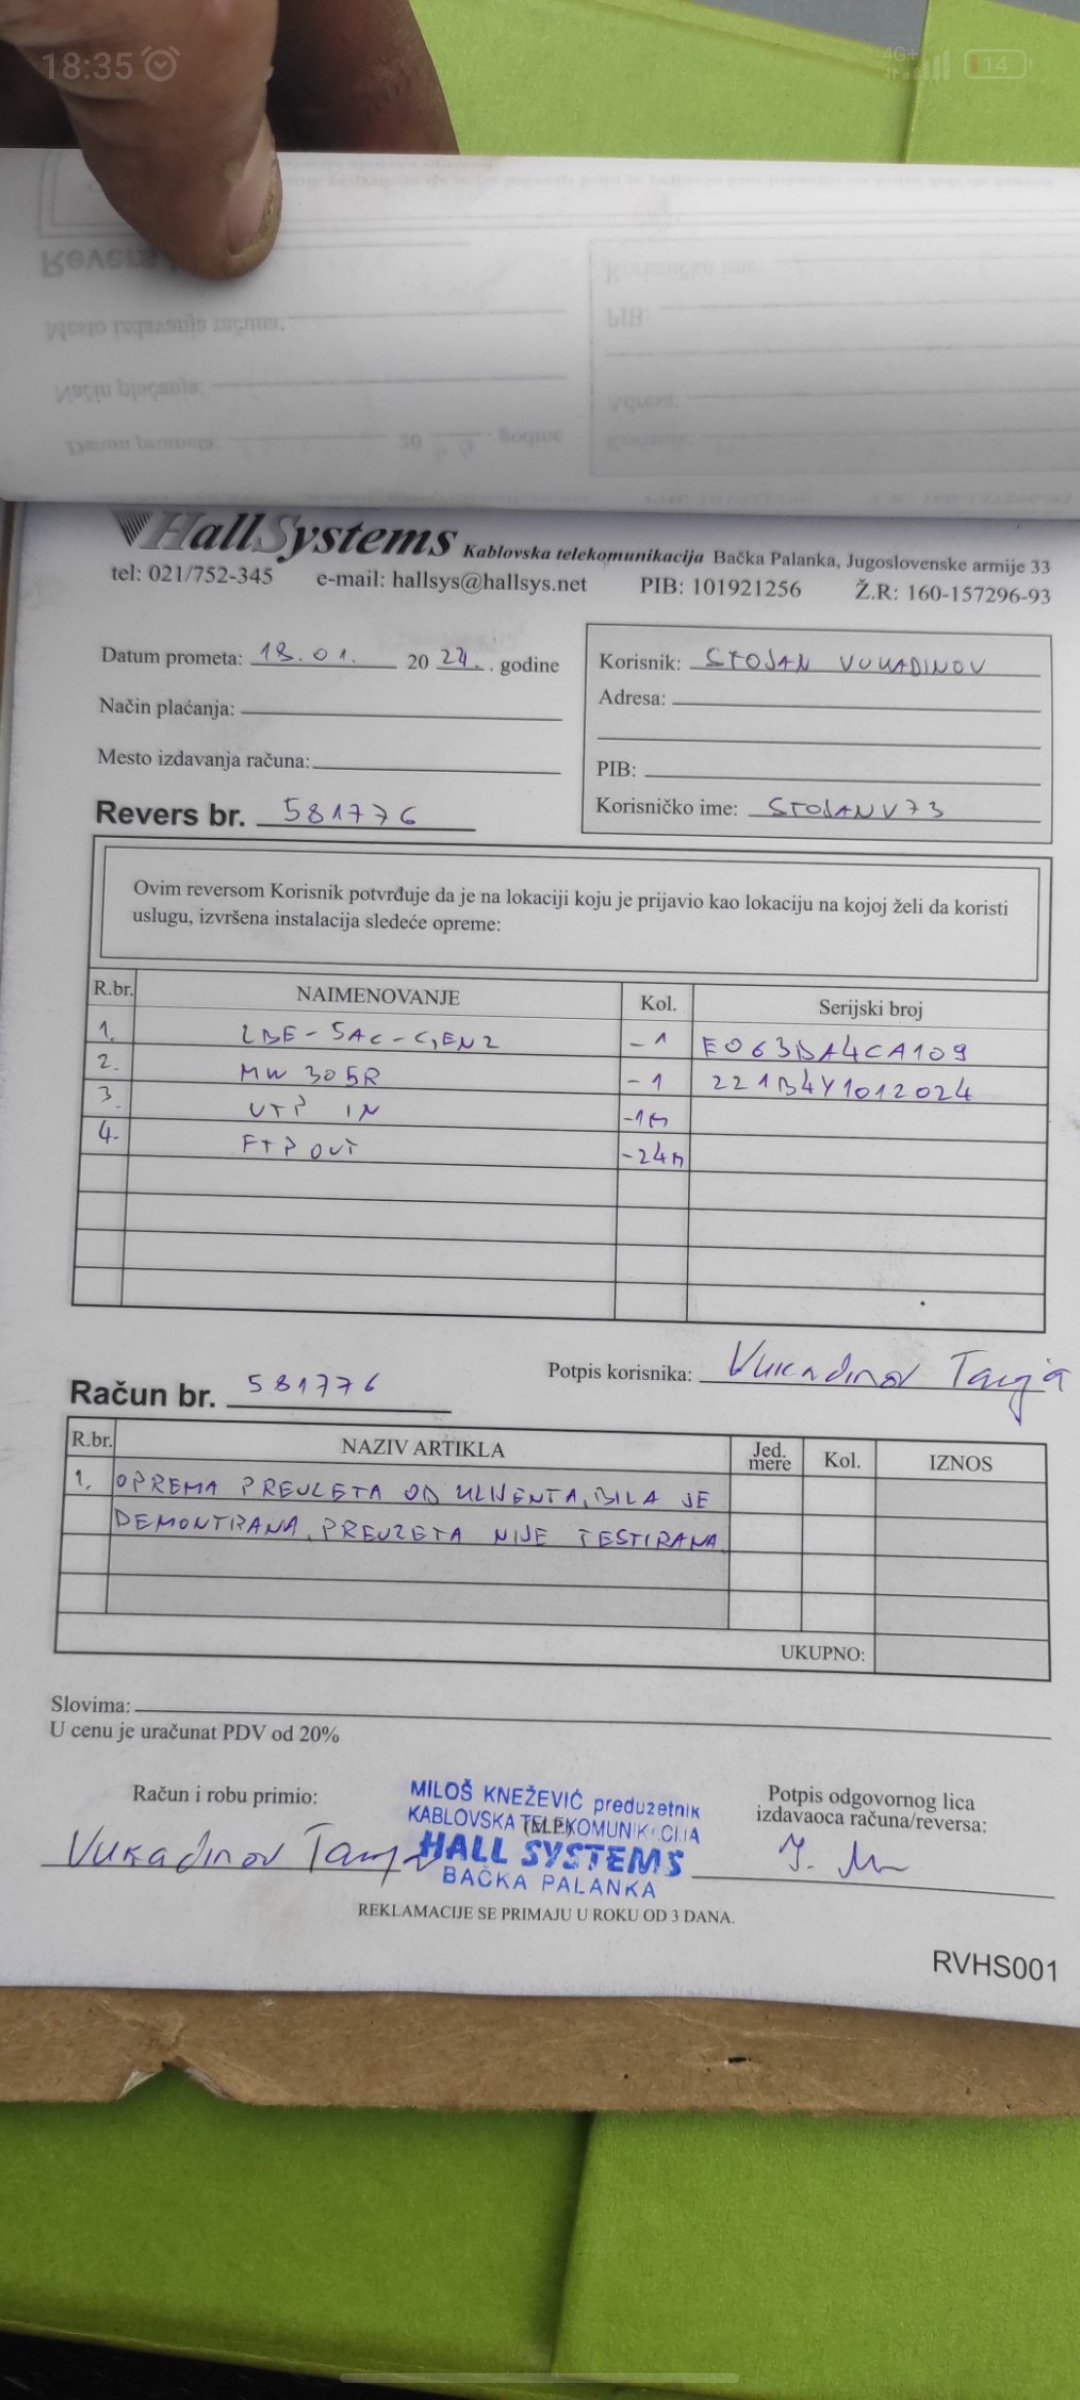 18:35
4G+
14
HallSystems Kablovska telekomunikacija Bačka Palanka, Jugoslovenske armije 33
tel: 021/752-345 e-mail: hallsys@hallsys.net PIB: 101921256 Ž.R: 160-157296-93
Datum prometa: 18.01. 20 24. . godine
Način plaćanja:
Mesto izdavanja računa:
Revers br. 581776
Korisnik: STOJAN VUKADINOV
Adresa:
PIB:
Korisničko ime: STOJANV73
Ovim reversom Korisnik potvrđuje da je na lokaciji koju je prijavio kao lokaciju na kojoj želi da koristi
uslugu, izvršena instalacija sledeće opreme:
R.br. NAIMENOVANJE Kol. Serijski broj
1. LBE-5AC-GEN2 -1 E063DA4CA109
2. MW305R -1 221B4Y1012024
3. UTP IN -1m
4. FTP OUT -24m
Potpis korisnika: Vukadinov Tanja
Račun br. 581776
R.br. NAZIV ARTIKLA Jed. mere Kol. IZNOS
1. OPREMA PREUZETA OD KLIJENTA, BILA JE
DEMONTIRANA, PREUZETA NIJE TESTIRANA
UKUPNO:
Slovima:
U cenu je uračunat PDV od 20%
Račun i robu primio:
Vukadinov Tanja
MILOŠ KNEŽEVIĆ preduzetnik
KABLOVSKA TELEKOMUNIKACIJA
(M.P.)
HALL SYSTEMS
BAČKA PALANKA
Potpis odgovornog lica
izdavaoca računa/reversa:
REKLAMACIJE SE PRIMAJU U ROKU OD 3 DANA.
RVHS001